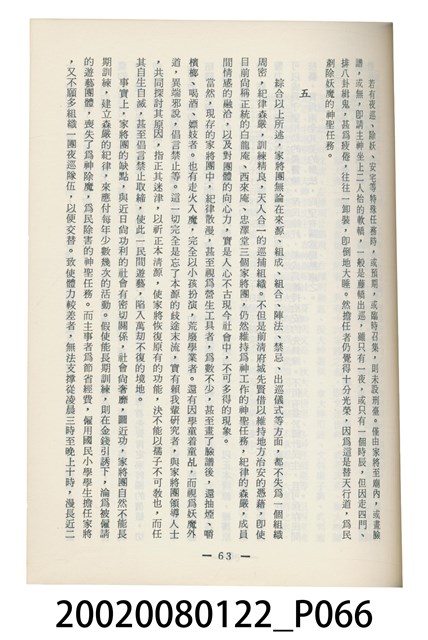 若有夜巡、除妖、安宅等特殊任務時，或預期，或臨時召集，則未設刑臺。僅由家將至廟內，或畫臉
譜，或無，即請主神坐上二人抬的敎轎，一般是藤轎出巡，雖只有一夜，或只有一個時辰，但因走四門、
排八卦緝鬼，甚爲疲倦，往往一卸裝，即倒地大睡。然擔任者仍覺得十分光榮，因爲這是替天行道，爲民
剷除妖魔的神聖任務。
五
綜合以上所述，家將團無論在來源、組成、組合、陣法、禁忌、出巡儀式等方面，都不失爲一個組織
周密，紀律森嚴，訓練精良，天人合一的巡捕組織。不但是前淸府城先賢借以維持地方治安的憑藉，即使
目前尙稱正統的白龍庵、西來庵、忠澤堂三個家將團，仍然維持爲神工作的神聖任務，紀律的森嚴，成員
間情感的融洽，以及對團體的向心力，實是人心不古現今社會中，不可多得的現象。
當然，現存的家將團中，紀律散漫，甚至視爲營生工具者，爲數不少，甚至畫了臉譜後，還抽煙、嚼
檳榔、喝酒、嫖妓者。也有走火入魔，完全以小孩扮演，荒廢學業者。還有因學童着童乩，而視爲妖魔外
道，異端邪說，倡言禁止等。這一切完全是忘了本源的歧途末流，實有賴我輩硏究者，與家將團領導人士
，共同探討其原因，指正其迷津，以祈正本淸源，使家將恢復原有的功能，決不能以孺子不可敎也，而任
其自生自滅，甚至倡言禁止取締，使此一民間遊藝，陷入萬劫不復的境地。
事實上，家將團的缺點，與近日尙功利的社會有密切關係，社會尙奢靡，圖近功，家將團自然不能長
期訓練，建立森嚴的紀律，來應付每年少數幾次的活動。假使能長期訓練，則在金錢引誘下，淪爲被僱請
的遊藝團體，喪失了爲神除魔，爲民除害的神聖任務。而主事者爲節省經費，僱用國民小學學生擔任家將
，又不願多組織一團夜巡隊伍，以便交替。致使體力較差者，無法支撐從淩晨三時至晚上十時，漫長近二
— 63 —
20020080122_P066